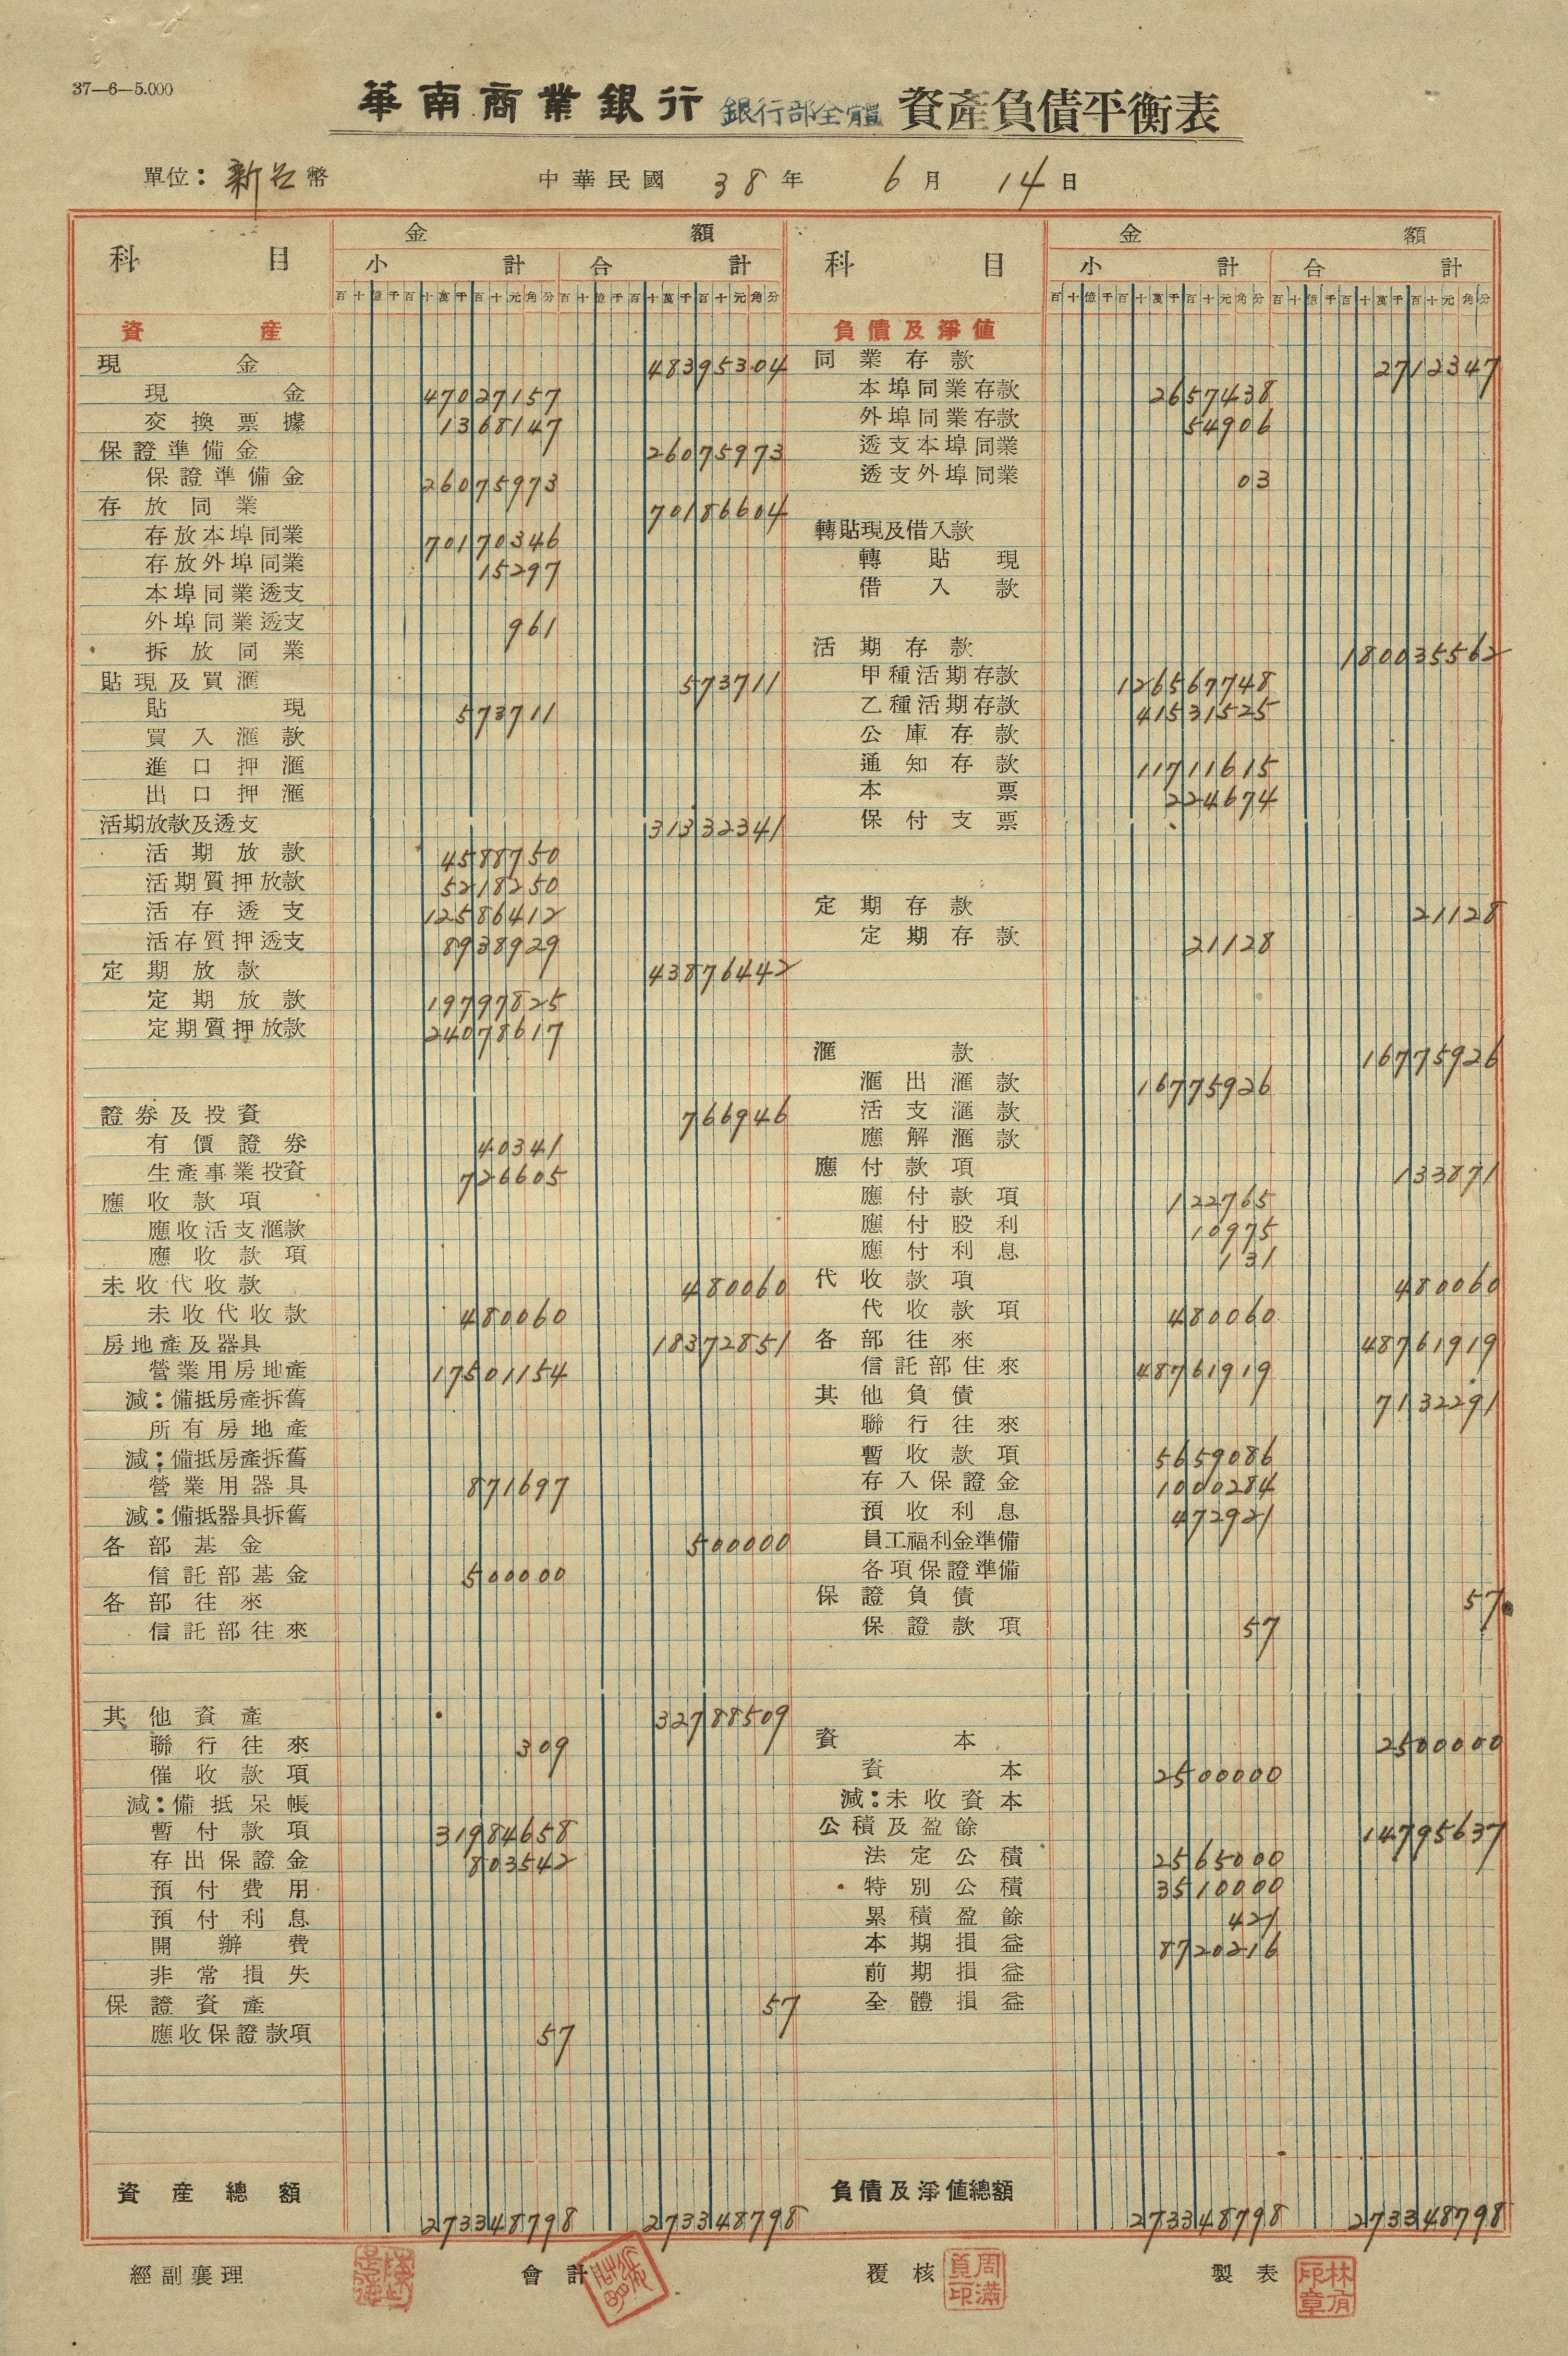 37—6—5.000
華南商業銀行 銀行部全體 資產負債平衡表
單位：新台幣 中華民國 38 年 6 月 14 日
科目 金額 科目 金額
小計 合計 小計 合計
百十億千百十萬千百十元角分 百十億千百十萬千百十元角分 百十億千百十萬千百十元角分 百十億千百十萬千百十元角分
資產
現金 48395304
現金 47027157
交換票據 1368147
保證準備金 26075973
保證準備金 26075973
存放同業 70186604
存放本埠同業 70170346
存放外埠同業 15297
本埠同業透支
外埠同業透支 961
拆放同業
貼現及買滙 573711
貼現 573711
買入滙款
進口押滙
出口押滙
活期放款及透支 31332341
活期放款 4588750
活期質押放款 5218250
活存透支 12586412
活存質押透支 8938929
定期放款 43876442
定期放款 19797825
定期質押放款 24078617
證券及投資 766946
有價證券 40341
生產事業投資 726605
應收款項
應收活支滙款
應收款項
未收代收款 480060
未收代收款 480060
房地產及器具 18372851
營業用房地產 17501154
減：備抵房產拆舊
所有房地產
減：備抵房產拆舊
營業用器具 871697
減：備抵器具拆舊
各部基金 500000
信託部基金 500000
各部往來
信託部往來
其他資產 32788509
聯行往來 309
催收款項
減：備抵呆帳
暫付款項 31984658
存出保證金 803542
預付費用
預付利息
開辦費
非常損失
保證資產 57
應收保證款項 57
資產總額 273348798 273348798
負債及淨值
同業存款 2712347
本埠同業存款 2657438
外埠同業存款 54906
透支本埠同業
透支外埠同業 03
轉貼現及借入款
轉貼現
借入款
活期存款 180035562
甲種活期存款 126567748
乙種活期存款 41531525
公庫存款
通知存款 11711615
本票 224674
保付支票
定期存款 21128
定期存款 21128
滙款 16775926
滙出滙款 16775926
活支滙款
應解滙款
應付款項 133871
應付款項 122765
應付股利 10975
應付利息 131
代收款項 480060
代收款項 480060
各部往來 48761919
信託部往來 48761919
其他負債 7132291
聯行往來
暫收款項 5659086
存入保證金 1000284
預收利息 472921
員工福利金準備
各項保證準備
保證負債 57
保證款項 57
資本 2500000
資本 2500000
減：未收資本
公積及盈餘 14795637
法定公積 2565000
特別公積 3510000
累積盈餘 421
本期損益 8720216
前期損益
全體損益
負債及淨值總額 273348798 273348798
經副襄理 會計 覆核 周滿頁印 製表